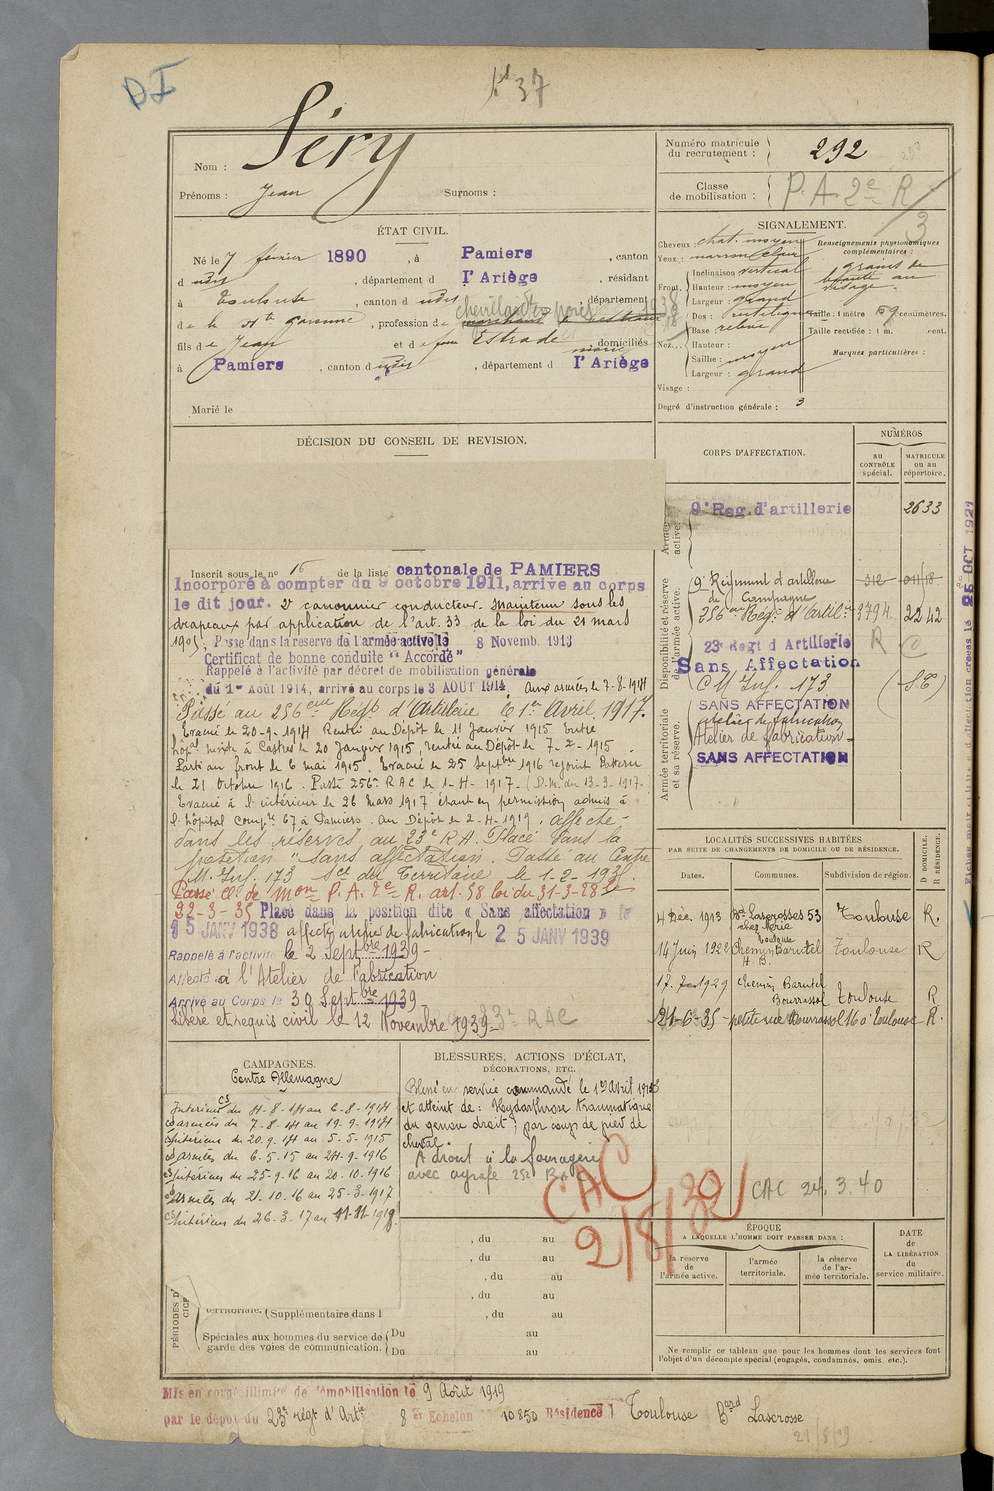 DI
37
Nom : Séry
Prénoms : Jean Surnoms :
Numéro matricule du recrutement : 292
Classe de mobilisation : P. A. 2e R
/3
ÉTAT CIVIL.
Né le 7 février 1890, à Pamiers, canton
d udit, département d l'Ariège, résidant
à Toulouse, canton d udit, département
de la Hte Garonne, profession de
fils de Jean et de feue Estrade, domiciliés
à Pamiers, canton d udit, département d l'Ariège
Marié le
SIGNALEMENT.
Cheveux : chat. moyen
Yeux : marron clair
Front. Inclinaison vertical
Hauteur : moyen
Largeur : grand
Nez... Dos : rectiligne
Base : relevé
Hauteur :
Saillie : moyen
Largeur : grand
Visage :
Degré d'instruction générale : 3
Renseignements physionomiques complémentaires :
grains de
beauté au
visage
Taille : 1 mètre 69 centimètres.
Taille rectifiée : 1 m. cent.
Marques particulières :
DÉCISION DU CONSEIL DE REVISION.
Inscrit sous le n° 16 de la liste cantonale de PAMIERS
Incorporé à compter du 9 octobre 1911, arrivé au corps
le dit jour. 2e canonnier conducteur. Maintenu sous les
drapeaux par application de l'art. 33 de la loi du 21 mars
1905; Passé dans la réserve de l'armée active le 8 Novemb. 1913
Certificat de bonne conduite "Accordé"
Rappelé à l'activité par décret de mobilisation générale
du 1er Août 1914, arrivé au corps le 3 AOUT 1914. Aux armées le 7-8-1914
Passé au 256eme Régt d'Artillerie le 1er Avril 1917.
Evacué le 20-9-1914 Rentré au Dépôt le 11 Janvier 1915 entré
hôpal mixte à Castres le 20 Janvier 1915, rentré au Dépôt le 7-2-1915
Parti au front le 6 mai 1915. Evacué le 25 Septbre 1916 rejoint Batterie
le 21 Octobre 1916. Passé 256e RAC le 1-4-1917 (D.M. du 13-3-1917.
Evacué à l'intérieur le 26 Mars 1917 étant en permission admis à
l'hôpital compre 67 à Pamiers. Au Dépôt le 2-4-1919. affecté
dans les réserves au 23e R A. Placé dans la
position "sans affectation. Passé au Centre
M. Inf. 173 Son du Territoire le 1-2-193
Passé C. de Mon P. A. 2e R. art. 58 loi du 31-3-28 le
22-3-35 Placé dans la position dite « Sans affectation » le
15 JANV 1938 affecté atelier de fabrication le 25 JANV 1939
Rappelé à l'activité le 2 Septbre 1939-
Affecté à l'Atelier de Fabrication
Arrivé au Corps le 30 Septbre 1939-
Libéré et requis civil le 12 Novembre 1939- 23e RAC
CORPS D'AFFECTATION.
NUMÉROS
AU CONTRÔLE spécial.
MATRICULE ou au répertoire.
Armée active.
9e Reg. d'artillerie 2633
Disponibilité et réserve de l'armée active.
9e Régiment d'artillerie
de Campagne
256eme Régt d'Artille 3794 2242
23e Regt d Artillerie R
Sans Affectation
C M Inf. 173
Armée territoriale et sa réserve.
SANS AFFECTATION
atelier de fabrication
Atelier de fabrication
SANS AFFECTATION
LOCALITÉS SUCCESSIVES HABITÉES
PAR SUITE DE CHANGEMENTS DE DOMICILE OU DE RÉSIDENCE.
Dates. Communes. Subdivision de région. D DOMICILE. R RÉSIDENCE.
4 Déc. 1913 Bd Lascrosses 53 Toulouse R.
14 Juin 1922 Chemin Barutel Toulouse R
17-7-1929 Chemin Barutel
Bourrassol Toulouse R
21-6-35 petite rue Bourrassol 16 à Toulouse R.
CAC 24. 3. 40
CAMPAGNES.
Contre Allemagne
Intérieur du 4-8-14 au 6-8-1914
armées du 7-8-14 au 19-9-1914
Intérieur du 20-9-14 au 5-5-1915
armées du 6-5-15 au 24-9-1916
Intérieur du 25-9-16 au 20-10-1916
armées du 21-10-16 au 25-3-1917
Intérieur du 26-3-17 au
BLESSURES, ACTIONS D'ÉCLAT,
DÉCORATIONS, ETC.
Blessé en service commandé le 1er Avril 191
et atteint de : Hydarthrose traumatique
du genou droit ; par coup de pied de
cheval.
A droit à la fouragère
avec agrafe RAC
CAC
2/8/39
, du au
, du au
, du au
, du au
, du au
PÉRIODES D'
territoriale. (Supplémentaire dans l
Spéciales aux hommes du service de garde des voies de communication. Du au
Du au
ÉPOQUE
A LAQUELLE L'HOMME DOIT PASSER DANS :
la réserve de l'armée active.
l'armée territoriale.
la réserve de l'armée territoriale.
DATE de LA LIBÉRATION du service militaire.
Ne remplir ce tableau que pour les hommes dont les services font l'objet d'un décompte spécial (engagés, condamnés, omis, etc.).
Mis en congé illimité de démobilisation le 9 Août 1919
par le dépôt du 23e régt d'Artie 8e Echelon 10850 Résidence : Toulouse Bard Lascrosse